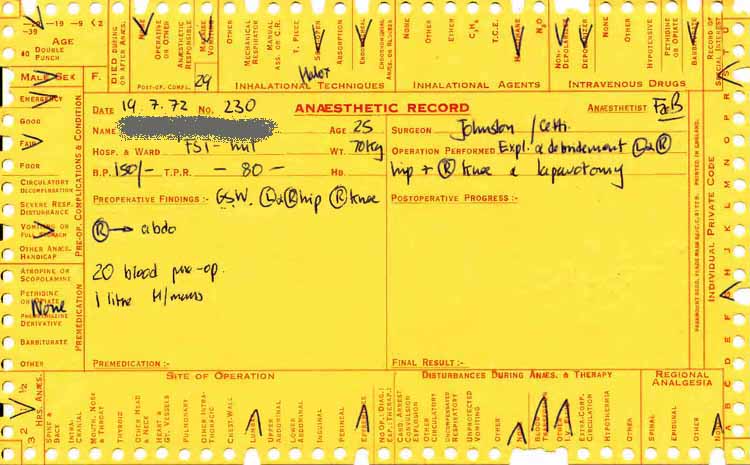 -19 -19 -9 <2
-39
AGE
40 DOUBLE PUNCH
DIED DURING OR AFTER ANÆS.
OPERATIVE OR OTHER
ANÆSTHETIC RESPONSIBLE
VOMITING
OTHER
MECHANICAL RESPIRATOR
MANUAL ASS. OR C.R.
T. PIECE
ABSORPTION
ENDOTRACHEAL
NONE
OTHER
ETHER
C₃H₆
T.C.E.
N₂O
NON-DEPOLARIZER
DEPOLARIZER
OTHER
HYPOTENSIVE
PETHIDINE OR OPIATE
RECORD OF SPECIAL INTEREST
MALE SEX F.
POST-OP. COMPL.
29
Halox
INHALATIONAL TECHNIQUES
INHALATIONAL AGENTS
INTRAVENOUS DRUGS
EMERGENCY
GOOD
FAIR
POOR
CIRCULATORY DECOMPENSATION
SEVERE RESP. DISTURBANCE
VOMITING OR FULL STOMACH
OTHER ANÆS. HANDICAP
PRE-OP. COMPLICATIONS & CONDITION
ATROPINE OR SCOPOLAMINE
PETHIDINE OR OPIATE
None
DERIVATIVE
BARBITURATE
OTHER
PREMEDICATION
DATE 19.7.72 NO. 230 ANÆSTHETIC RECORD ANÆSTHETIST
NAME AGE 25 SURGEON Johnston / Cetti
HOSP. & WARD FST - WT. 70kg OPERATION PERFORMED Expl. & debridement (L) & (R)
B.P. 150/- T.P.R. - 80 - HB. hip + (R) knee & laparotomy
PREOPERATIVE FINDINGS :- GSW. (L) & (R) hip (R) knee POSTOPERATIVE PROGRESS :-
(R) → abdo
20 blood pre-op.
1 litre H/manns
PREMEDICATION :- FINAL RESULT :-
PRINTED IN ENGLAND.
INDIVIDUAL PRIVATE CODE
SITE OF OPERATION
DISTURBANCES DURING ANÆS. & THERAPY
REGIONAL ANALGESIA
3 2 1 ½
HRS. ANÆS.
SPINE & BACK
INTRA-CRANIAL
MOUTH, NOSE & THROAT
THYROID
OTHER HEAD & NECK
HEART & GT. VESSELS
PULMONARY
OTHER INTRA-THORACIC
CHEST-WALL
LUMBAR
UPPER ABDOMINAL
LOWER ABDOMINAL
INGUINAL
PERINEAL
NO. OF: (DIAG.; EXP.; THERAP.)
CARD. ARREST
CONVULSION EXPLOSION
OTHER CIRCULATORY
UNCOMPENSATED RESPIRATORY
UNPROTECTED VOMITING
OTHER
EXTRA-CORP. CIRCULATION
HYPOTHERMIA
OTHER
SPINAL
EPIDURAL
OTHER